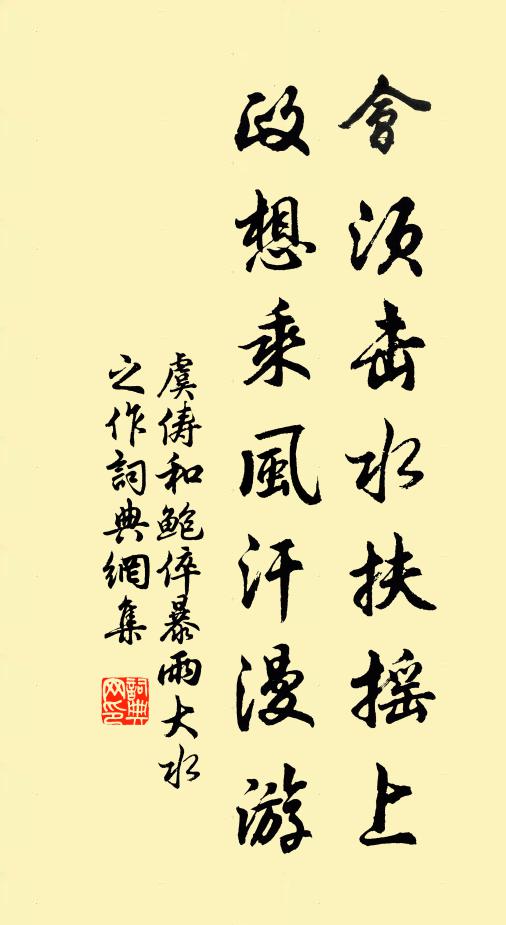 會須击水扶摇上
政想乘風汗漫游
虞俦和鲍倅暴雨大水
之作詞典網集
詞典
网印